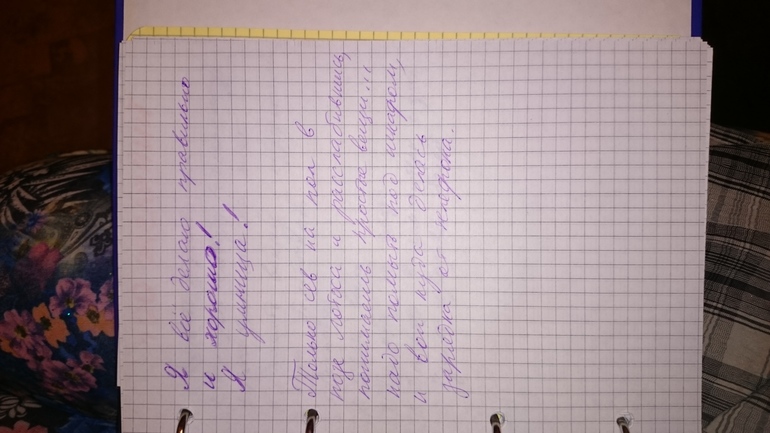 Я всё делаю правильно
и хорошо!
Я умница!
Только сев на пол в
позе лотоса и расслабившись,
понимаешь простые вещи...
надо помыть под шкафом,
и вон куда делась
зарядка от телефона.